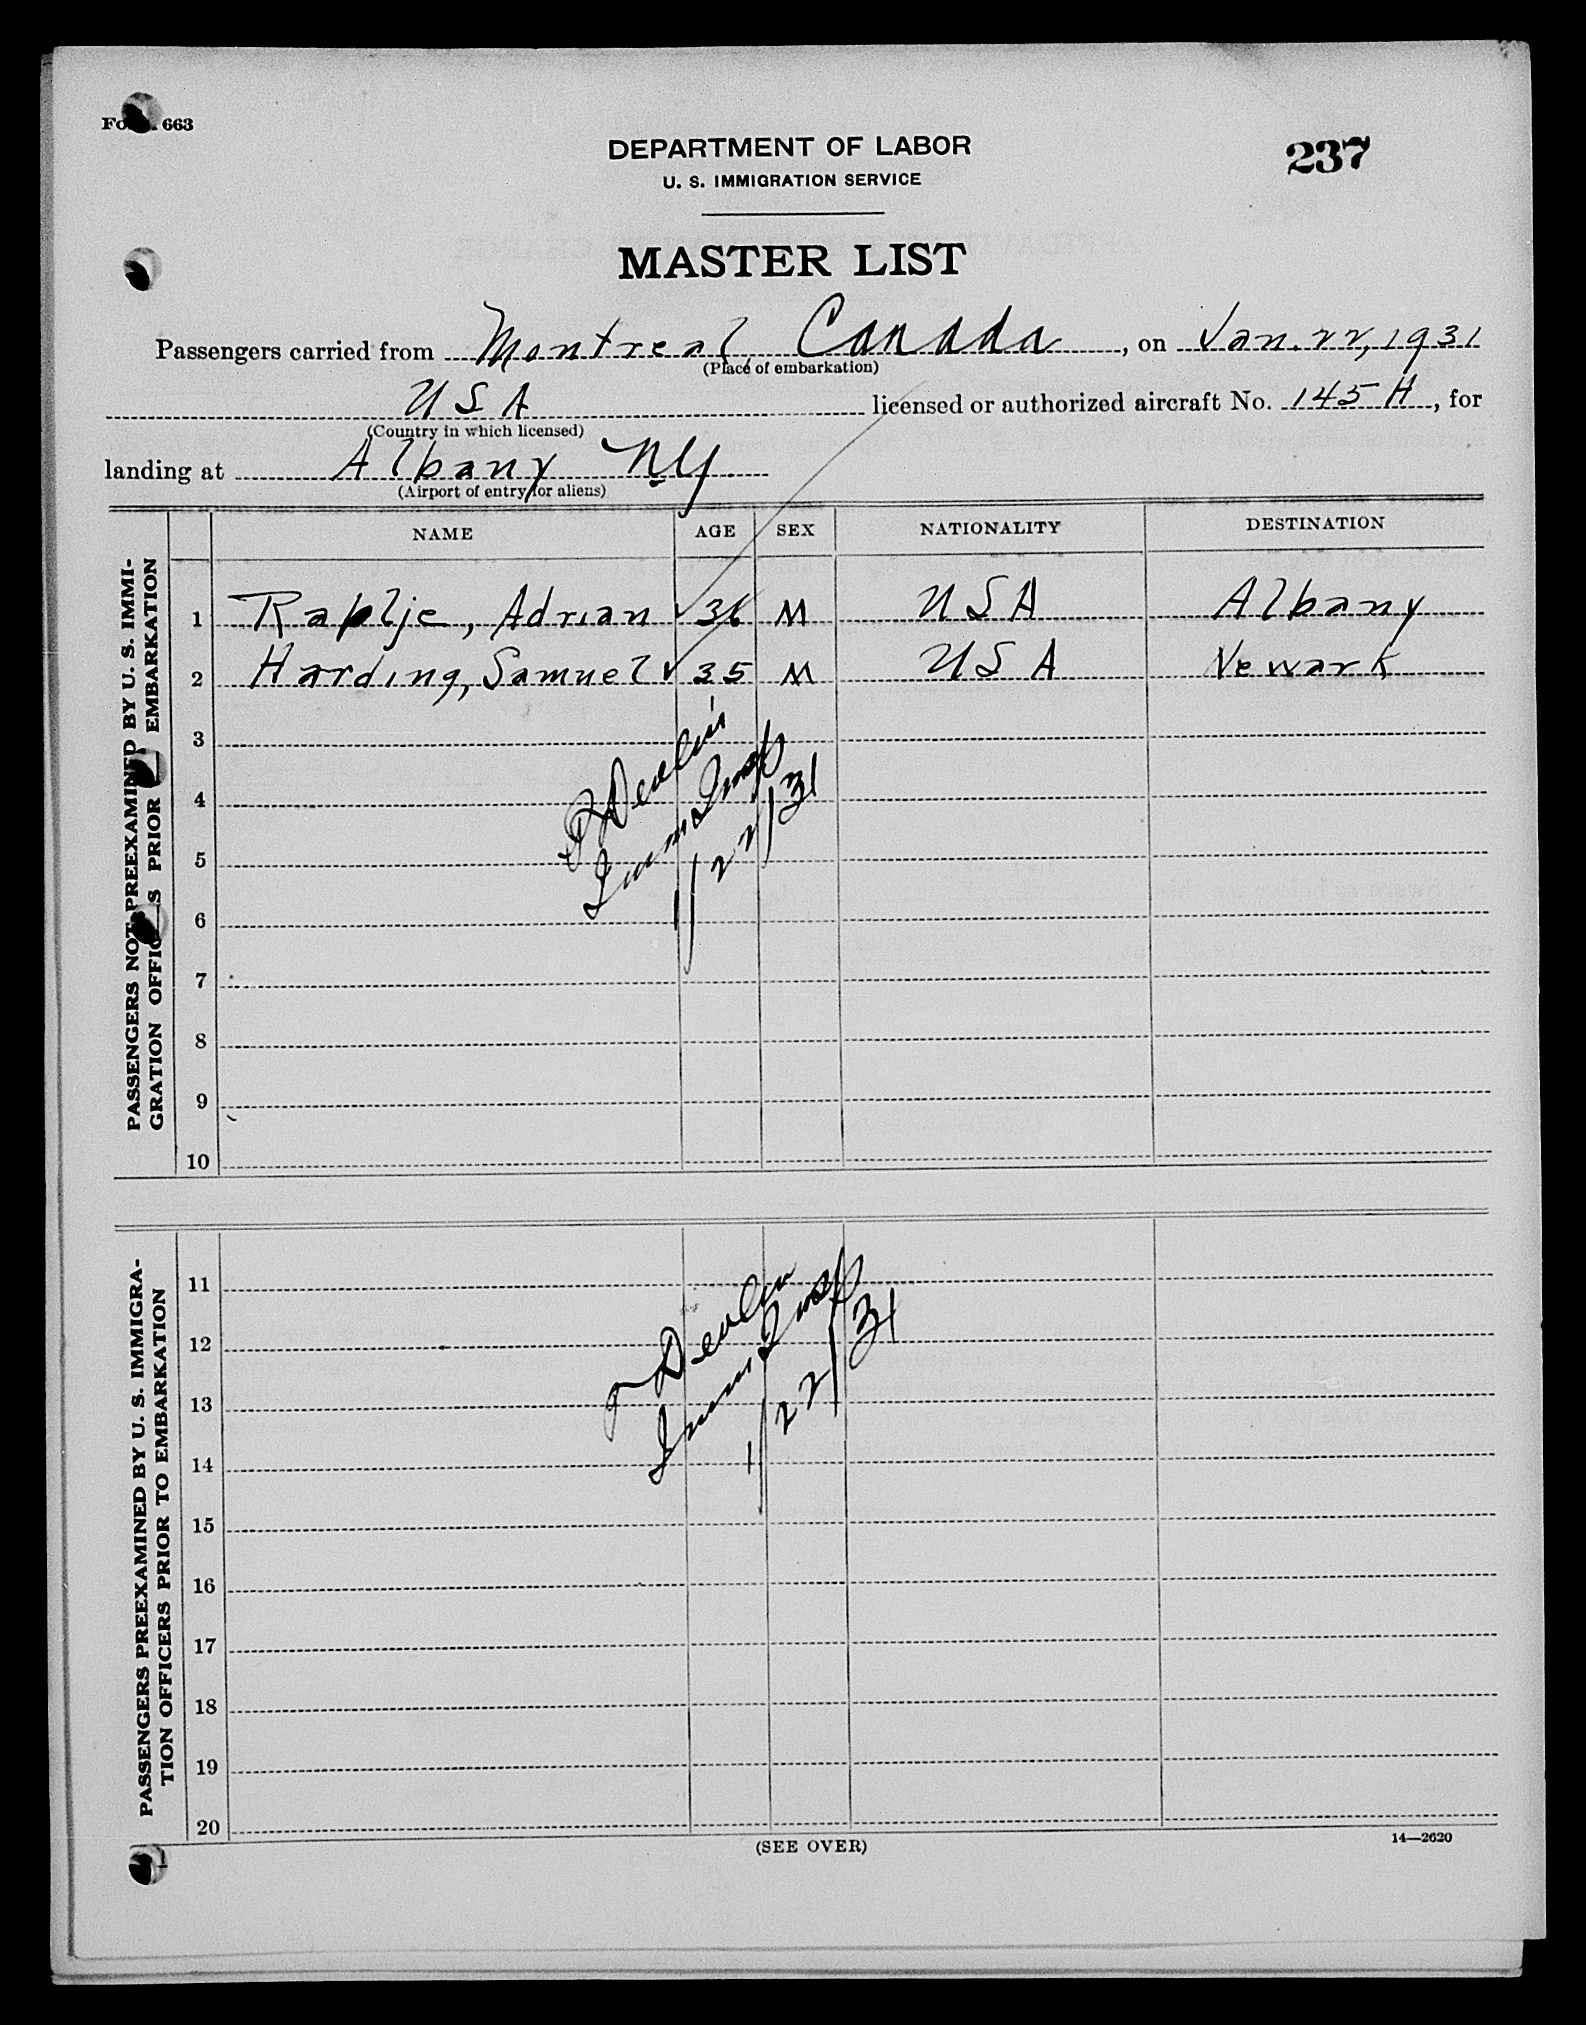 Form 663
DEPARTMENT OF LABOR
U. S. IMMIGRATION SERVICE
237
MASTER LIST
Passengers carried from Montreal, Canada, on Jan. 22, 1931
(Place of embarkation)
USA licensed or authorized aircraft No. 145 H, for
(Country in which licensed)
landing at Albany NY
(Airport of entry for aliens)
NAME AGE SEX NATIONALITY DESTINATION
PASSENGERS NOT PREEXAMINED BY U. S. IMMI-
GRATION OFFICERS PRIOR TO EMBARKATION
1 Raplje, Adrian 36 M USA Albany
2 Harding, Samuel 35 M USA Newark
3
4
5
6
7
8
9
10
Devlin
Imm Insp
1/22/31
PASSENGERS PREEXAMINED BY U. S. IMMIGRA-
TION OFFICERS PRIOR TO EMBARKATION
11
12
13
14
15
16
17
18
19
20
Devlin
Imm Insp
1/22/31
(SEE OVER)
14—2620